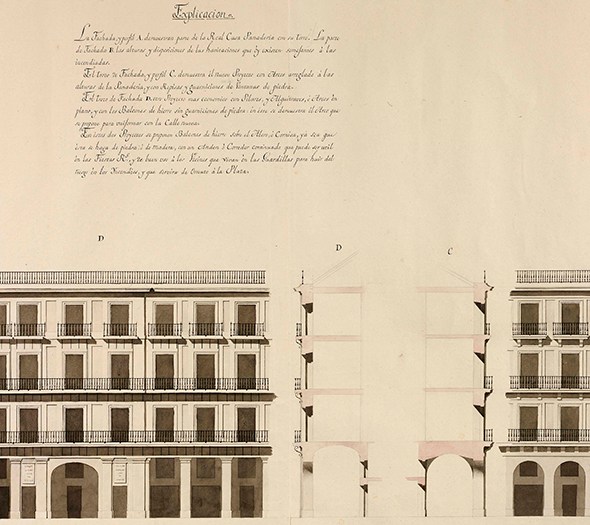 Explicacion.
La Fachada, y perfil A. demuestran parte de la Real Casa Panaderia con su torre. La parte
de Fachada B. las alturas y disposiciones de las havitaciones que oy existen semejantes à las
incendiadas.
El trozo de Fachada, y perfil C. demuestra el nuevo Proyecto con Arcos arreglado à las
alturas de la Panaderia, y con Repisas y guarniciones de Ventanas de piedra.
El trozo de Fachada D. otro Proyecto mas economico con Pilares, y Alquitraves, ò Arcos en
plano, y con los Balcones de hierro sin guarniciones de piedra: en este se demuestra el Arco que
se propone para uniformar con la Calle nueva.
En estos dos Proyectos se proponen Balcones de hierro sobre el Alero, ò Cornisa, yà sea que
esta se haga de piedra, ò de madera, con un Anden ò Corredor continuado que puede ser util
en las Fiestas R.s, y de buen uso à los Vecinos que vivan en las Guardillas para huir del
riesgo en los Incendios, y que servira de Ornato à la Plaza.
D
D
C